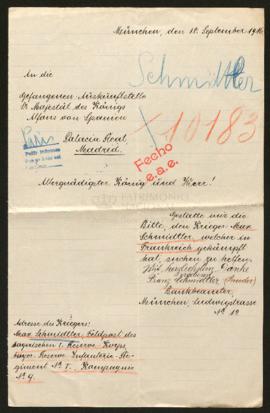 München, den 18. September 1916
An die
Schmidtler
Gefangenen Auskunftstelle
Sr Majestät des Königs
Alfons von Spanien
Paris
Palacio Real
Madrid.
X 10183
Fecho
e.a.e.
Allergnädigster König und Herr!
Gestatte mir die
Bitte, den Krieger Max
Schmidtler, welcher in
Frankreich gekämpft
hat, suchen zu helfen.
Mit herzlichstem Danke
Franz Schmidtler (Bruder)
Bankbeamter
München, Ludwigstrasse
No 12
Adresse des Kriegers:
Max Schmidtler, Feldpost des
bayrischen 1. Reserve Korps
bayr. Reserve Infanterie-Re-
giment No 1. Kompagnie
No 9.